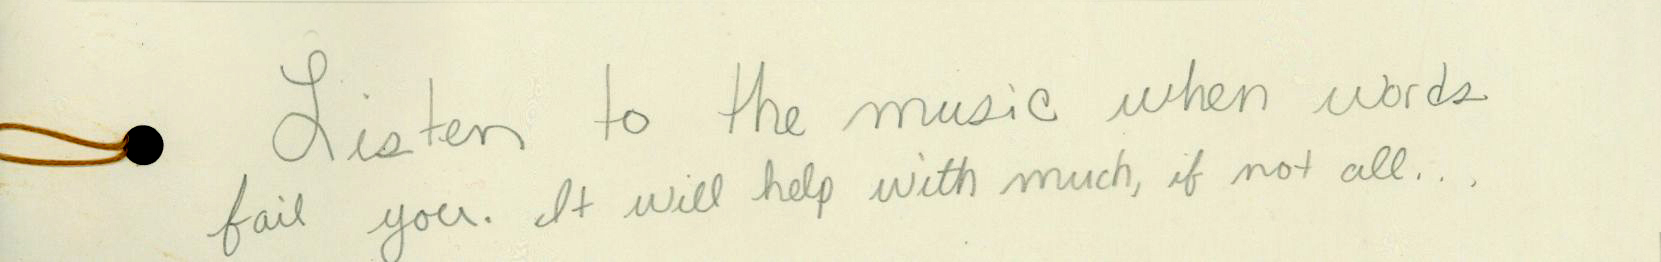 Listen to the music when words
fail you. It will help with much, if not all...